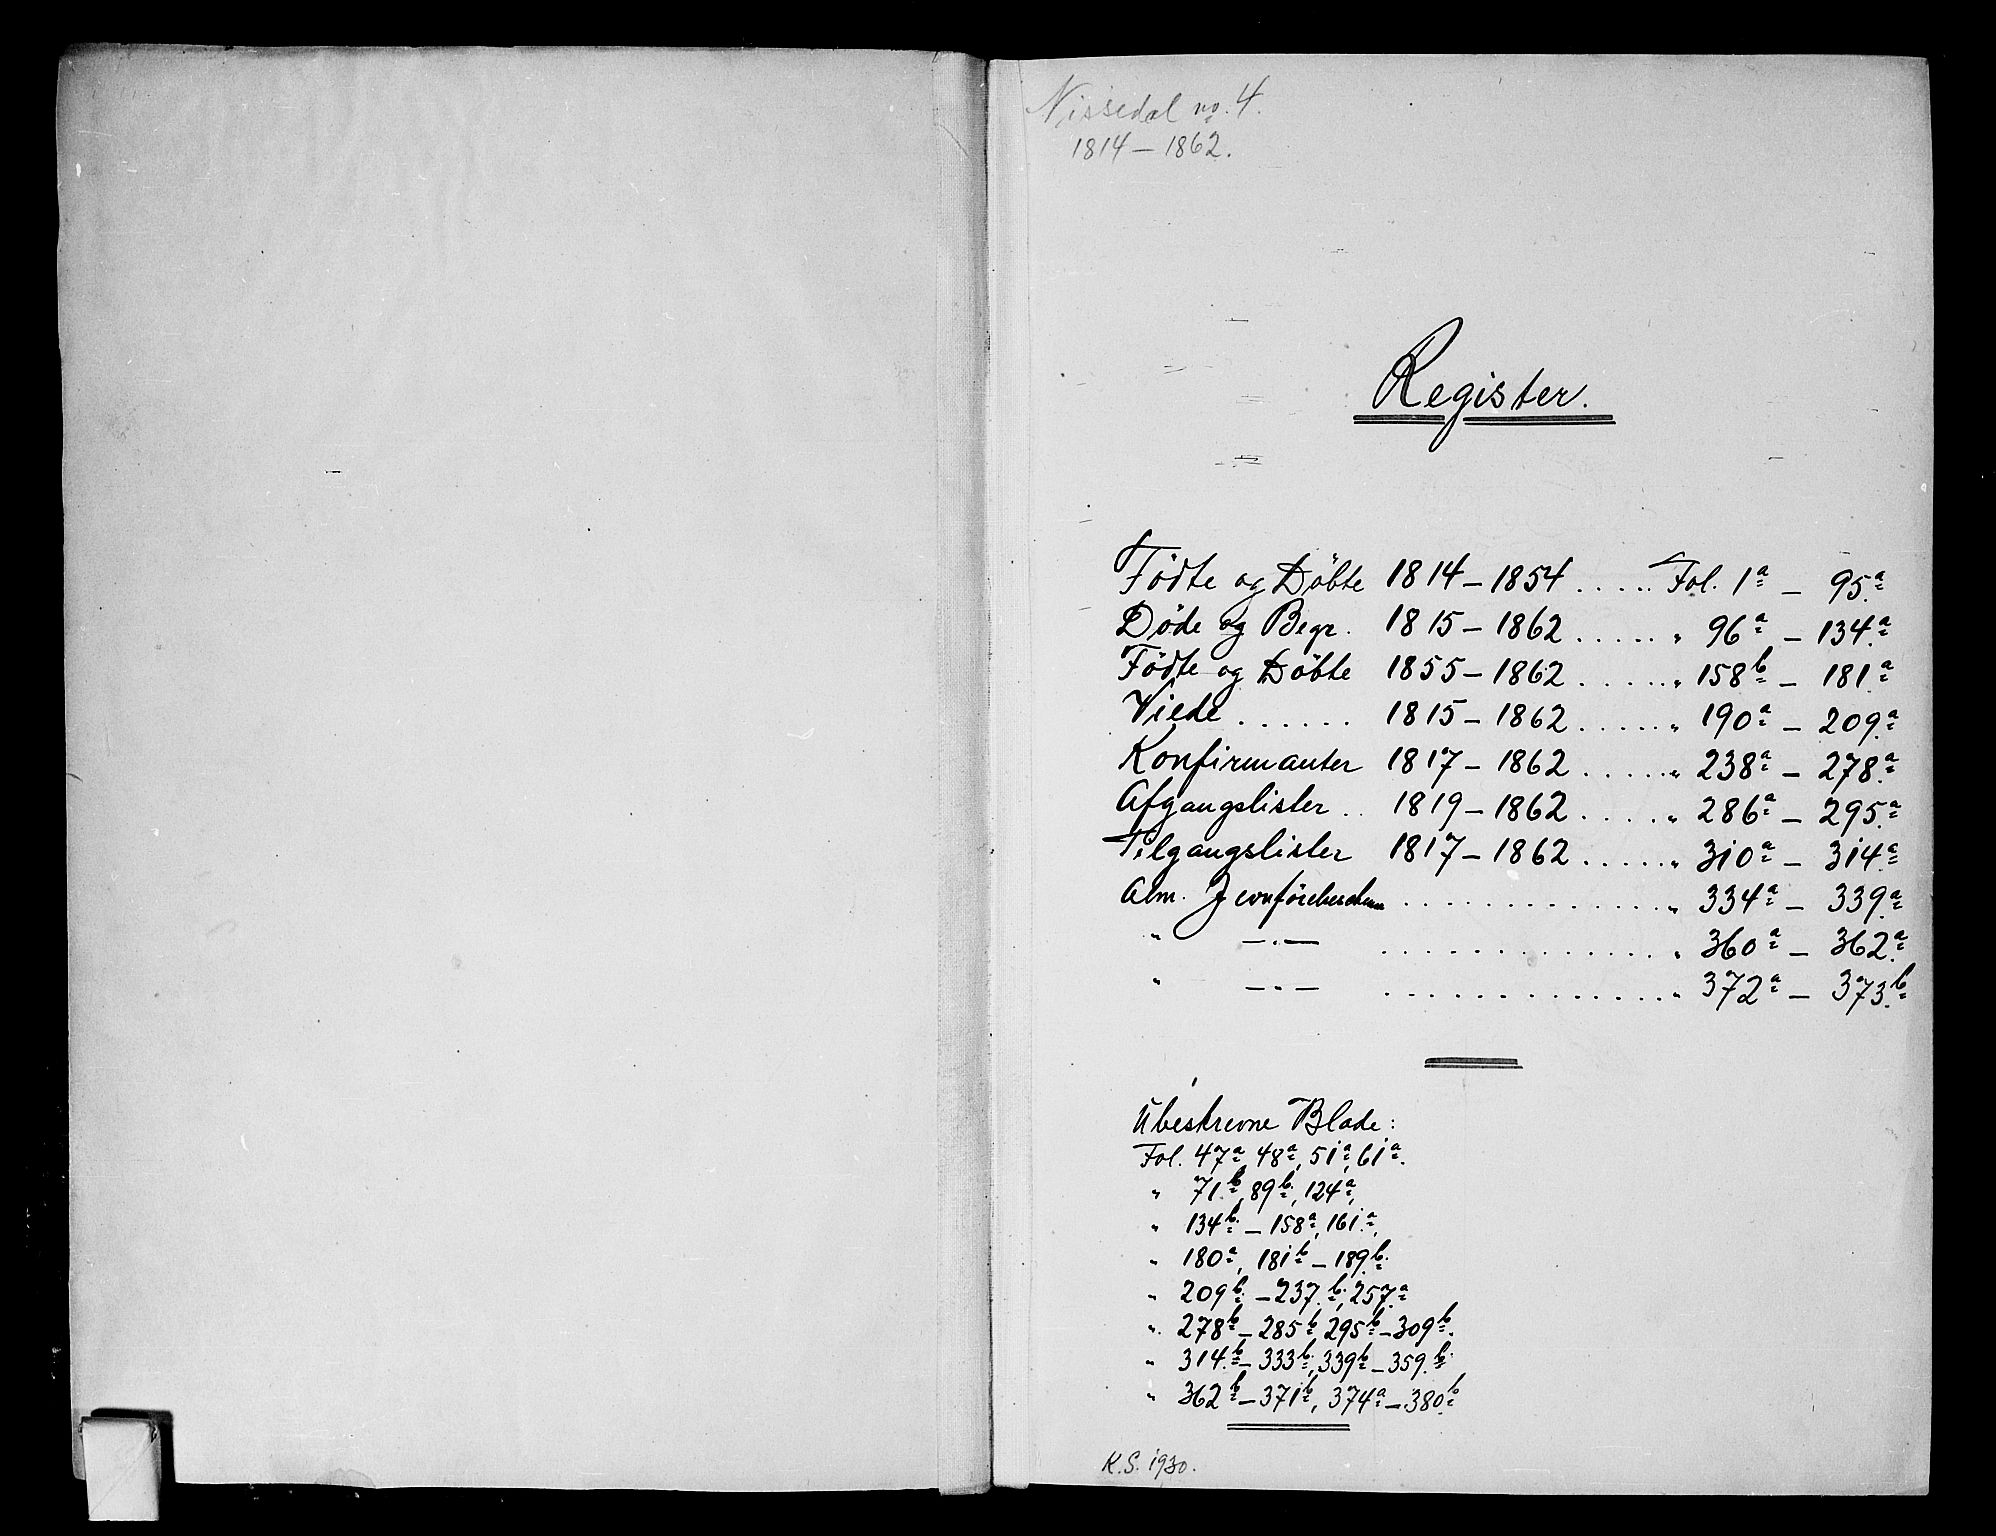 Nissedal no. 4.
1814 – 1862.
Register.
Födte og Döbte 1814 – 1854 ..... Fol. 1a – 95a
Döde og Begr. 1815 – 1862 ..... „ 96a – 134a
Födte og Döbte 1855 – 1862 ..... „ 158b – 181a
Viede ...... 1815 – 1862 ..... „ 190a – 209a
Konfirmanter 1817 – 1862 ..... „ 238a – 278a
Afgangslister .. 1819 – 1862 ..... „ 286a – 295a
Tilgangslister 1817 – 1862 ..... „ 310a – 314a
Alm. .............. „ 334a – 339a
„ – „ – .............. „ 360a – 362a
„ – „ – .............. „ 372a – 373b
Ubeskrevne Blade:
Fol. 47a, 48a, 51a, 61a.
„ 71b, 89b, 124a,
„ 134b – 158a, 161a,
„ 180a, 181b – 189b.
„ 209b – 237b, 257a
„ 278b – 285b, 295b – 309b.
„ 314b – 333b, 339b – 359b.
„ 362b – 371b, 374a – 380b
K.S. 1930.